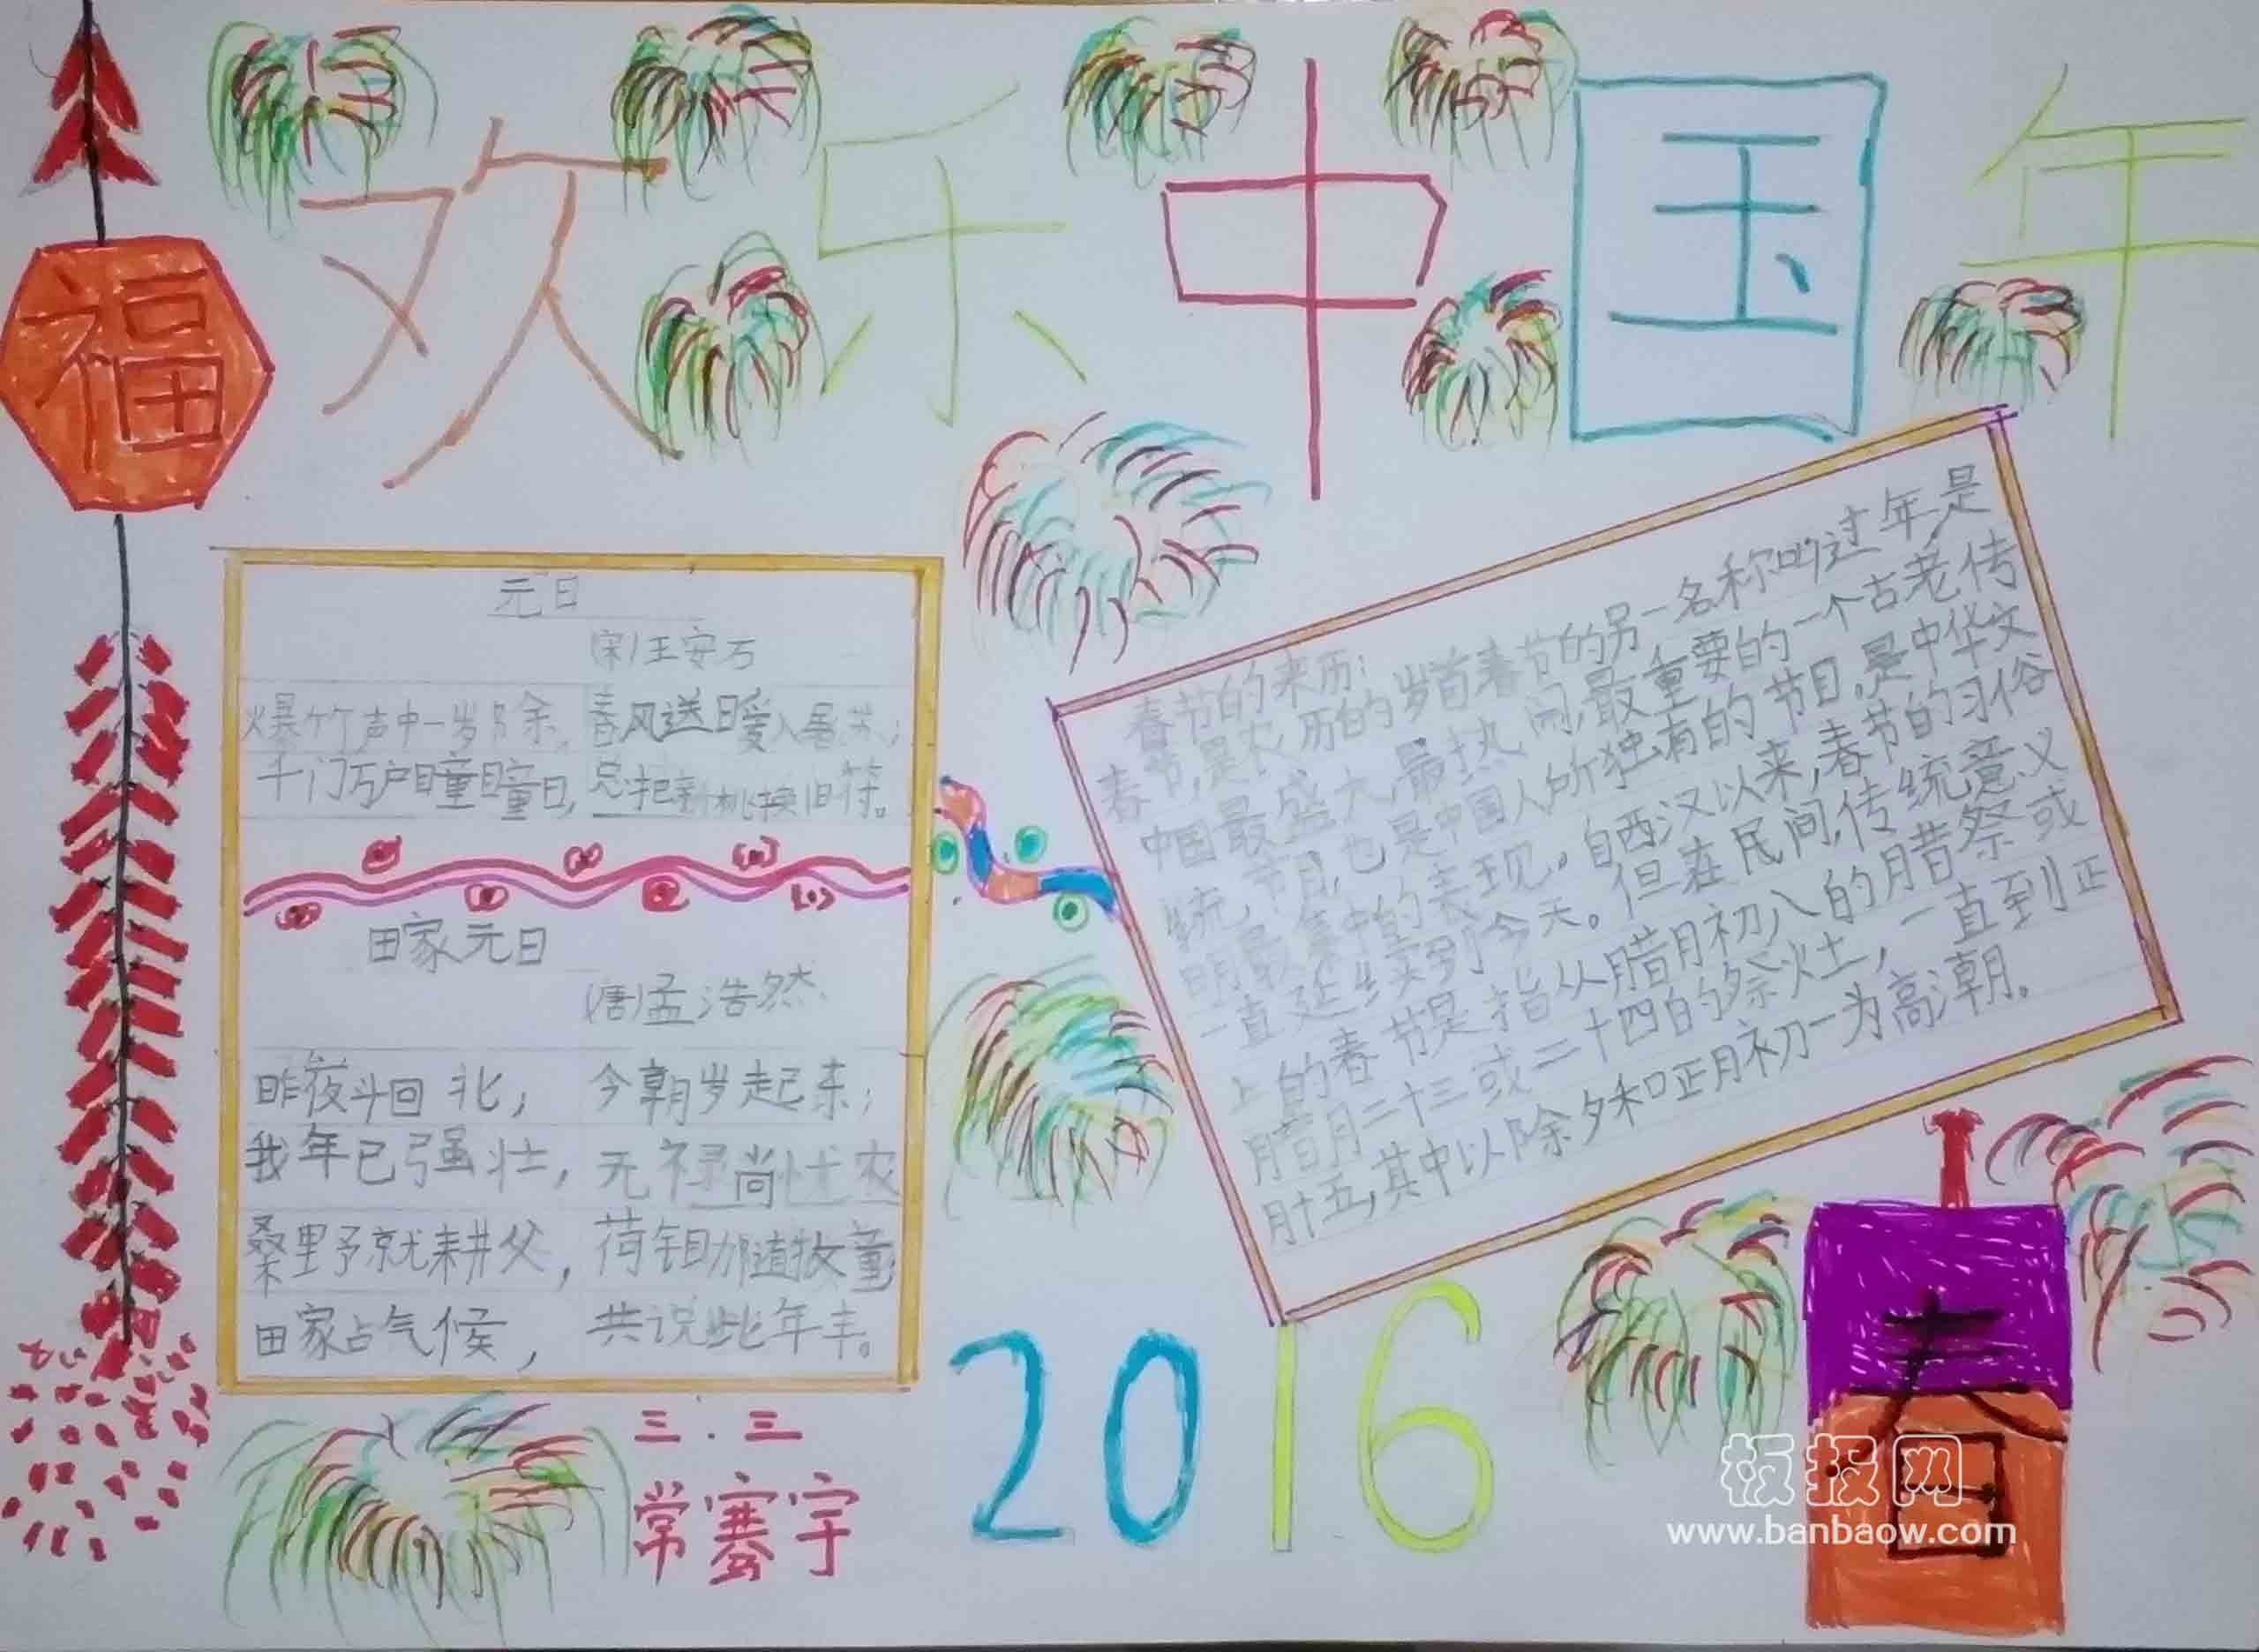 欢乐中国年
福
元日
(宋)王安石
爆竹声中一岁除,春风送暖入屠苏;
千门万户瞳瞳日,总把新桃换旧符。
田家元日
(唐)孟浩然
昨夜斗回北,今朝岁起东;
我年已强壮,无禄尚忧农
桑野予就耕父,荷锄那道牧童
田家占气候,共说此年丰。
春节的来历:
春节,是农历的岁首春节的另一名称叫过年,是
中国最盛大,最热闹,最重要的一个古老传
统,节日,也是中国人所独有的节日,是中华文
明最集中的表现。自西汉以来,春节的习俗
一直延续到今天。但在民间,传统意义
上的春节是指从腊月初八的腊祭或
腊月二十三或二十四的祭灶,一直到正
月十五,其中以除夕和正月初一为高潮。
2016
三.三
常骞宇
春
板报网
www.banbaow.com